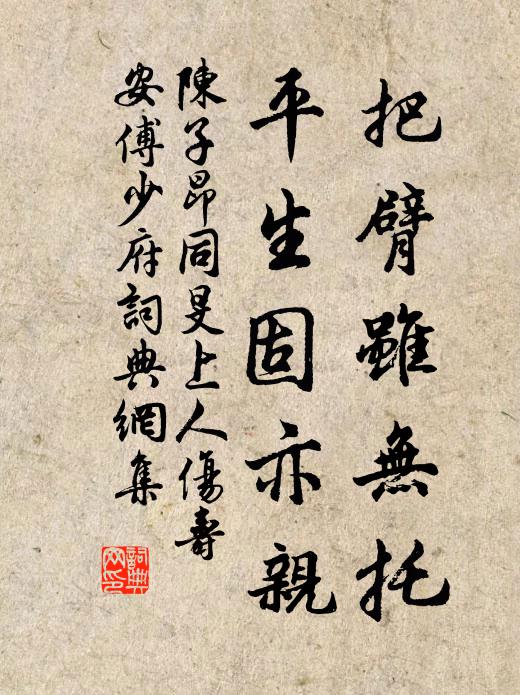 把臂雖無托
平生固亦親
陳子昂同旻上人傷壽
安傅少府詞典網集
詞典
网印